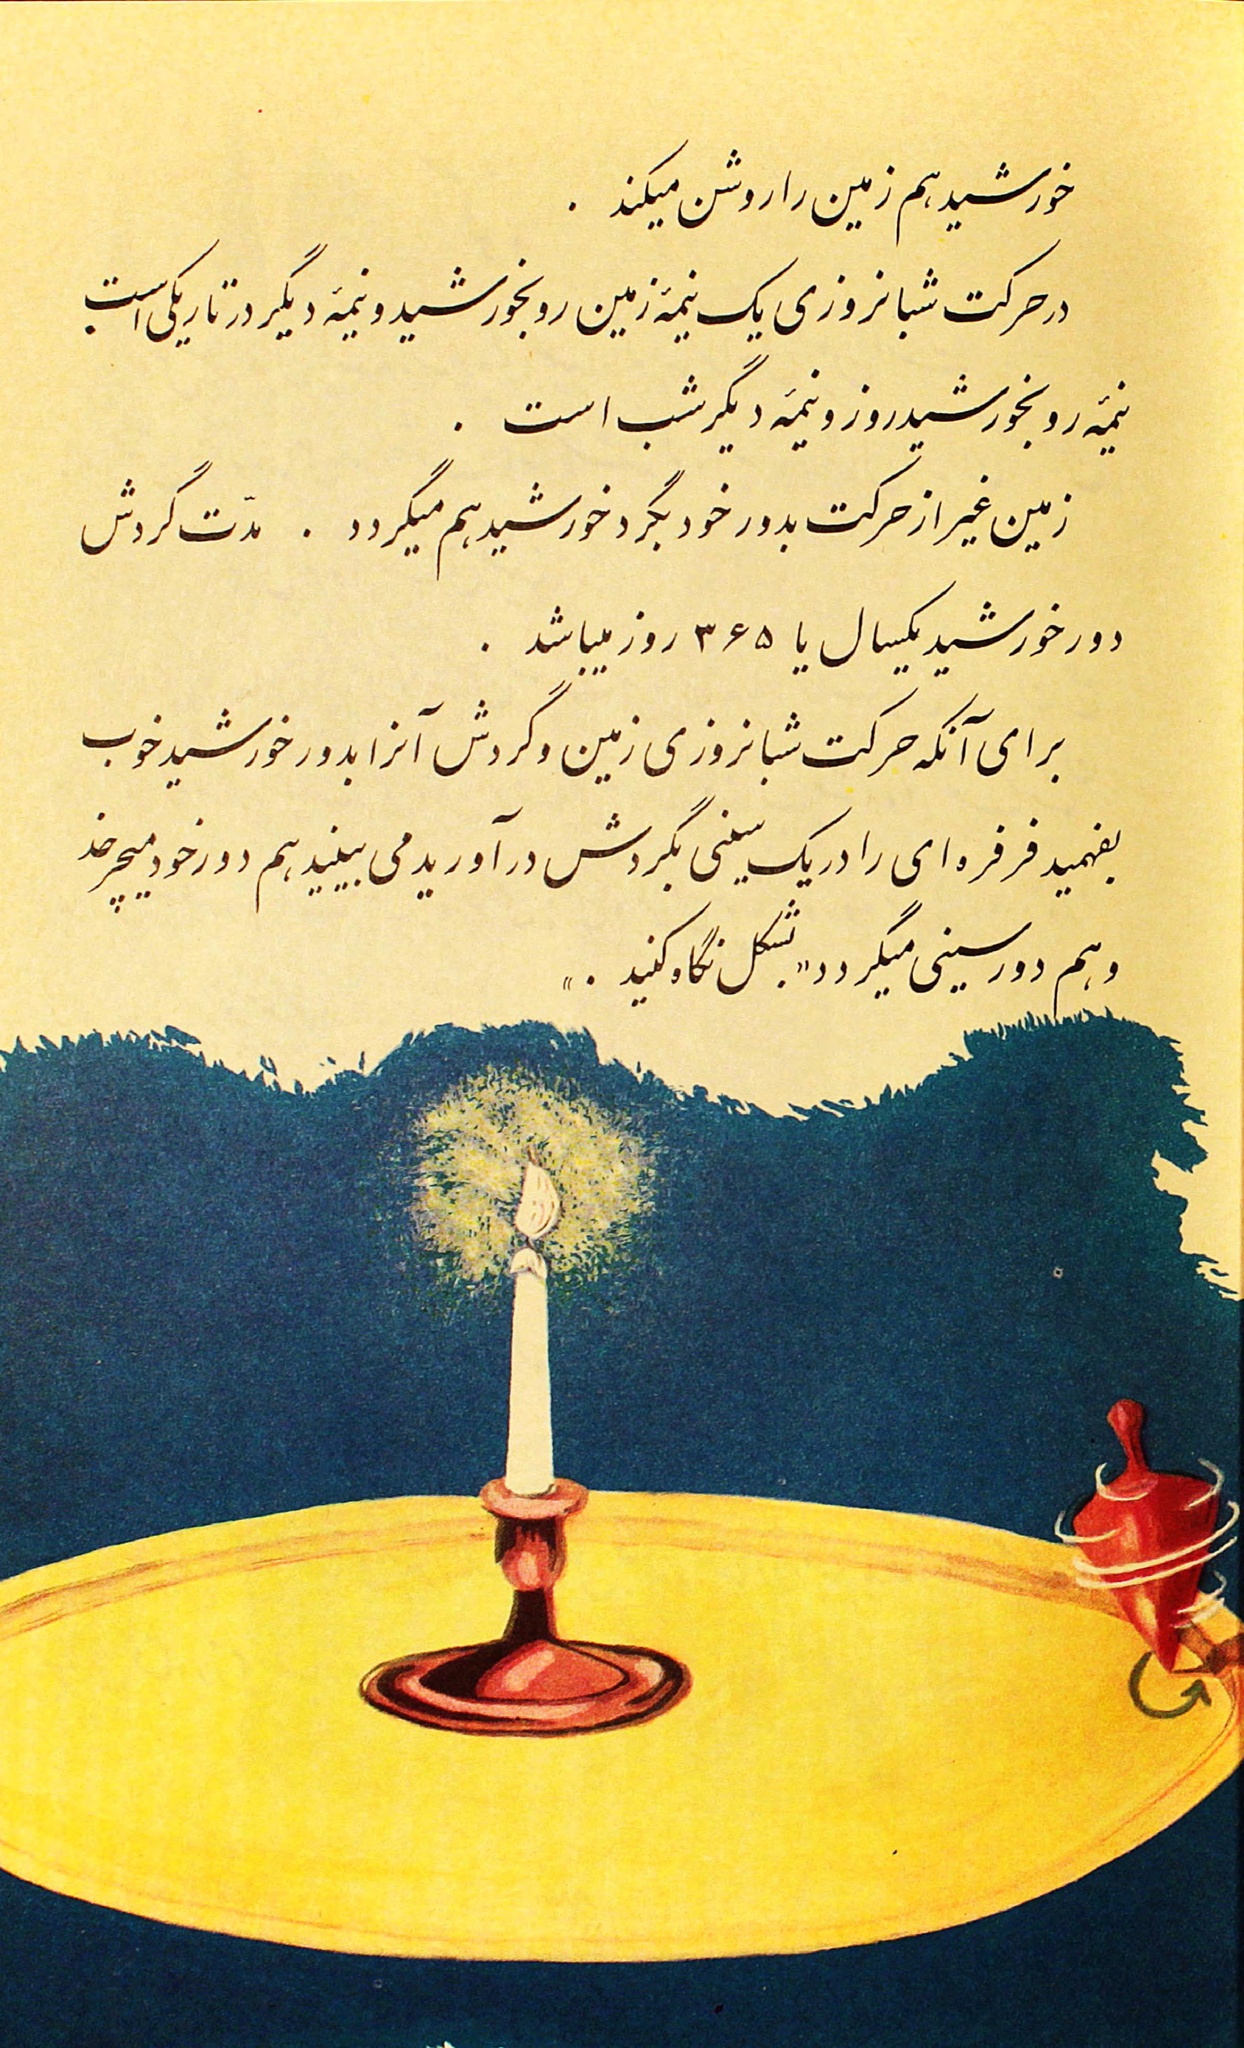 خورشید هم زمین را روشن میکند .
در حرکت شبانروزی یک نیمهٔ زمین رو بخورشید و نیمهٔ دیگر در تاریکی است
نیمهٔ رو بخورشید روز و نیمهٔ دیگر شب است .
زمین غیر از حرکت بدور خود بگرد خورشید هم میگردد . مدّت گردش
دور خورشید یکسال یا ۳۶۵ روز میباشد .
برای آنکه حرکت شبانروزی زمین و گردش آنرا بدور خورشید خوب
بفهمید فرفره ای را در یک سینی بگردش در آورید می بینید هم دور خود میچرخد
و هم دور سینی میگردد «بشکل نگاه کنید . »